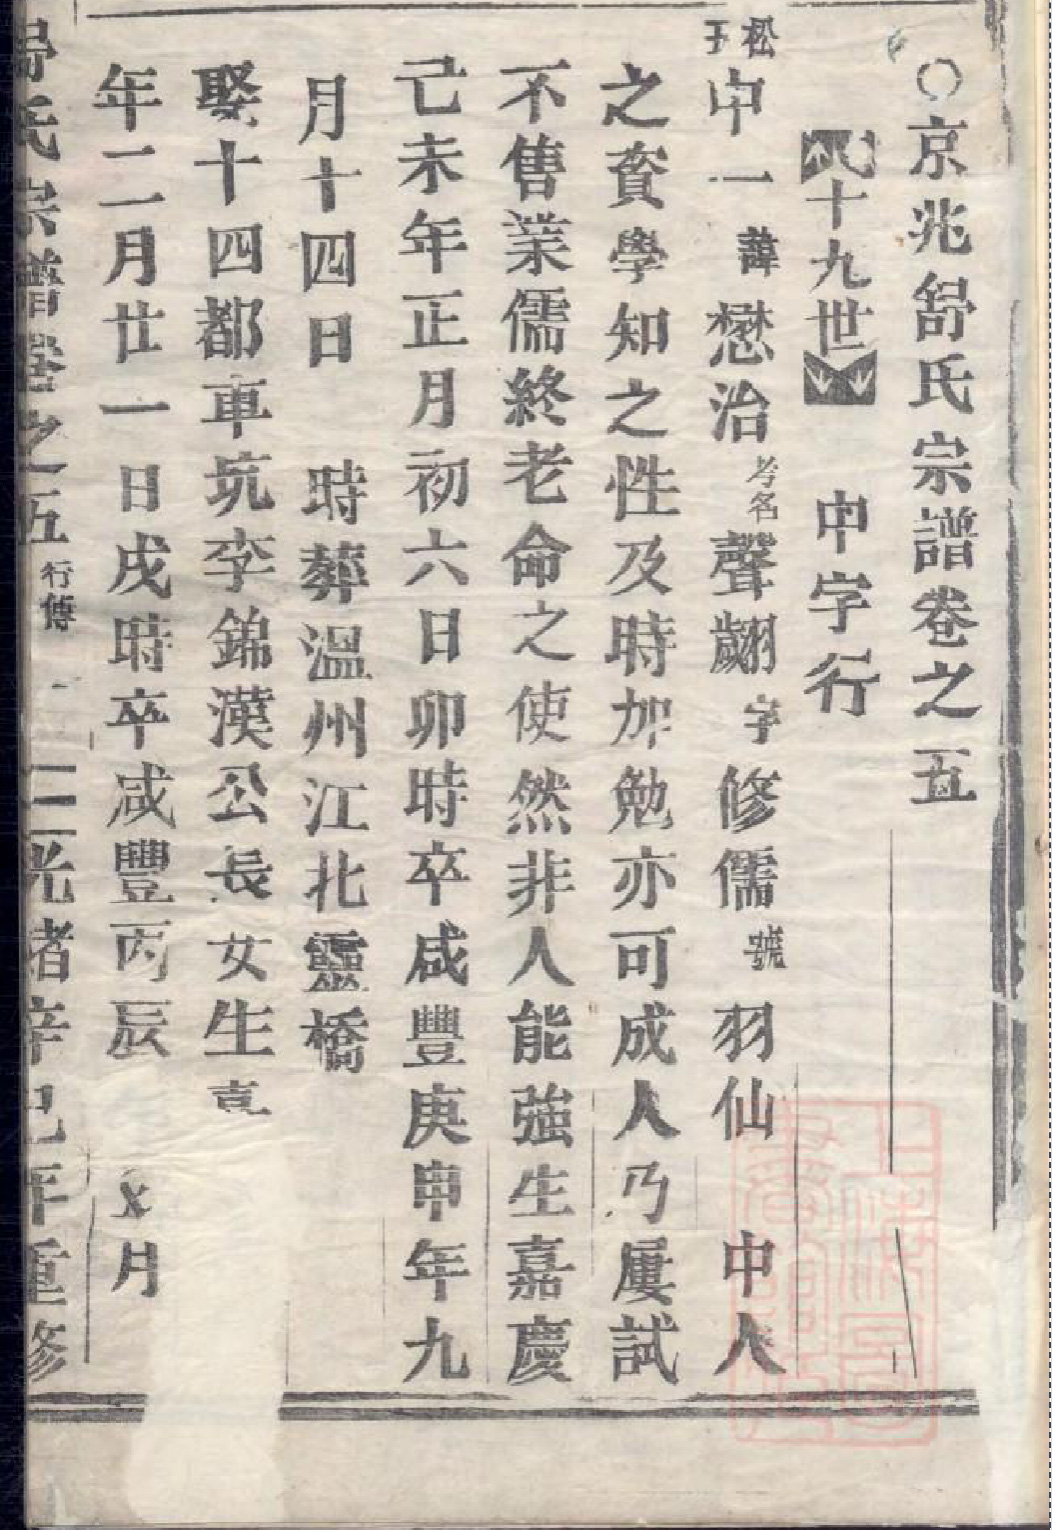 ○京兆舒氏宗譜卷之五
十九世 中字行
松子
中一諱懋治考名聲翽字修儒號羽仙 中人
之資學知之性及時加勉亦可成人乃屢試
不售業儒終老命之使然非人能強生嘉慶
己未年正月初六日卯時卒咸豐庚申年九
月十四日 時葬溫州江北靈橋
娶十四都車坑李錦漢公長女生嘉
年二月廿一日戌時卒咸豐丙辰 月
舒氏宗譜卷之五 行傳 一 光緒辛巳年重修